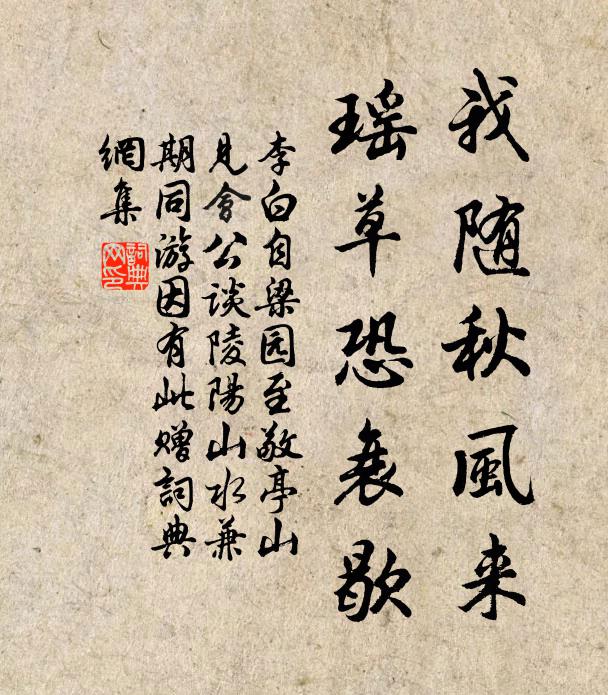 我随秋風来
瑶草恐衰歇
李白自梁园至敬亭山
見會公談陵陽山水兼
期同游因有此赠詞典
網集
詞典
网印